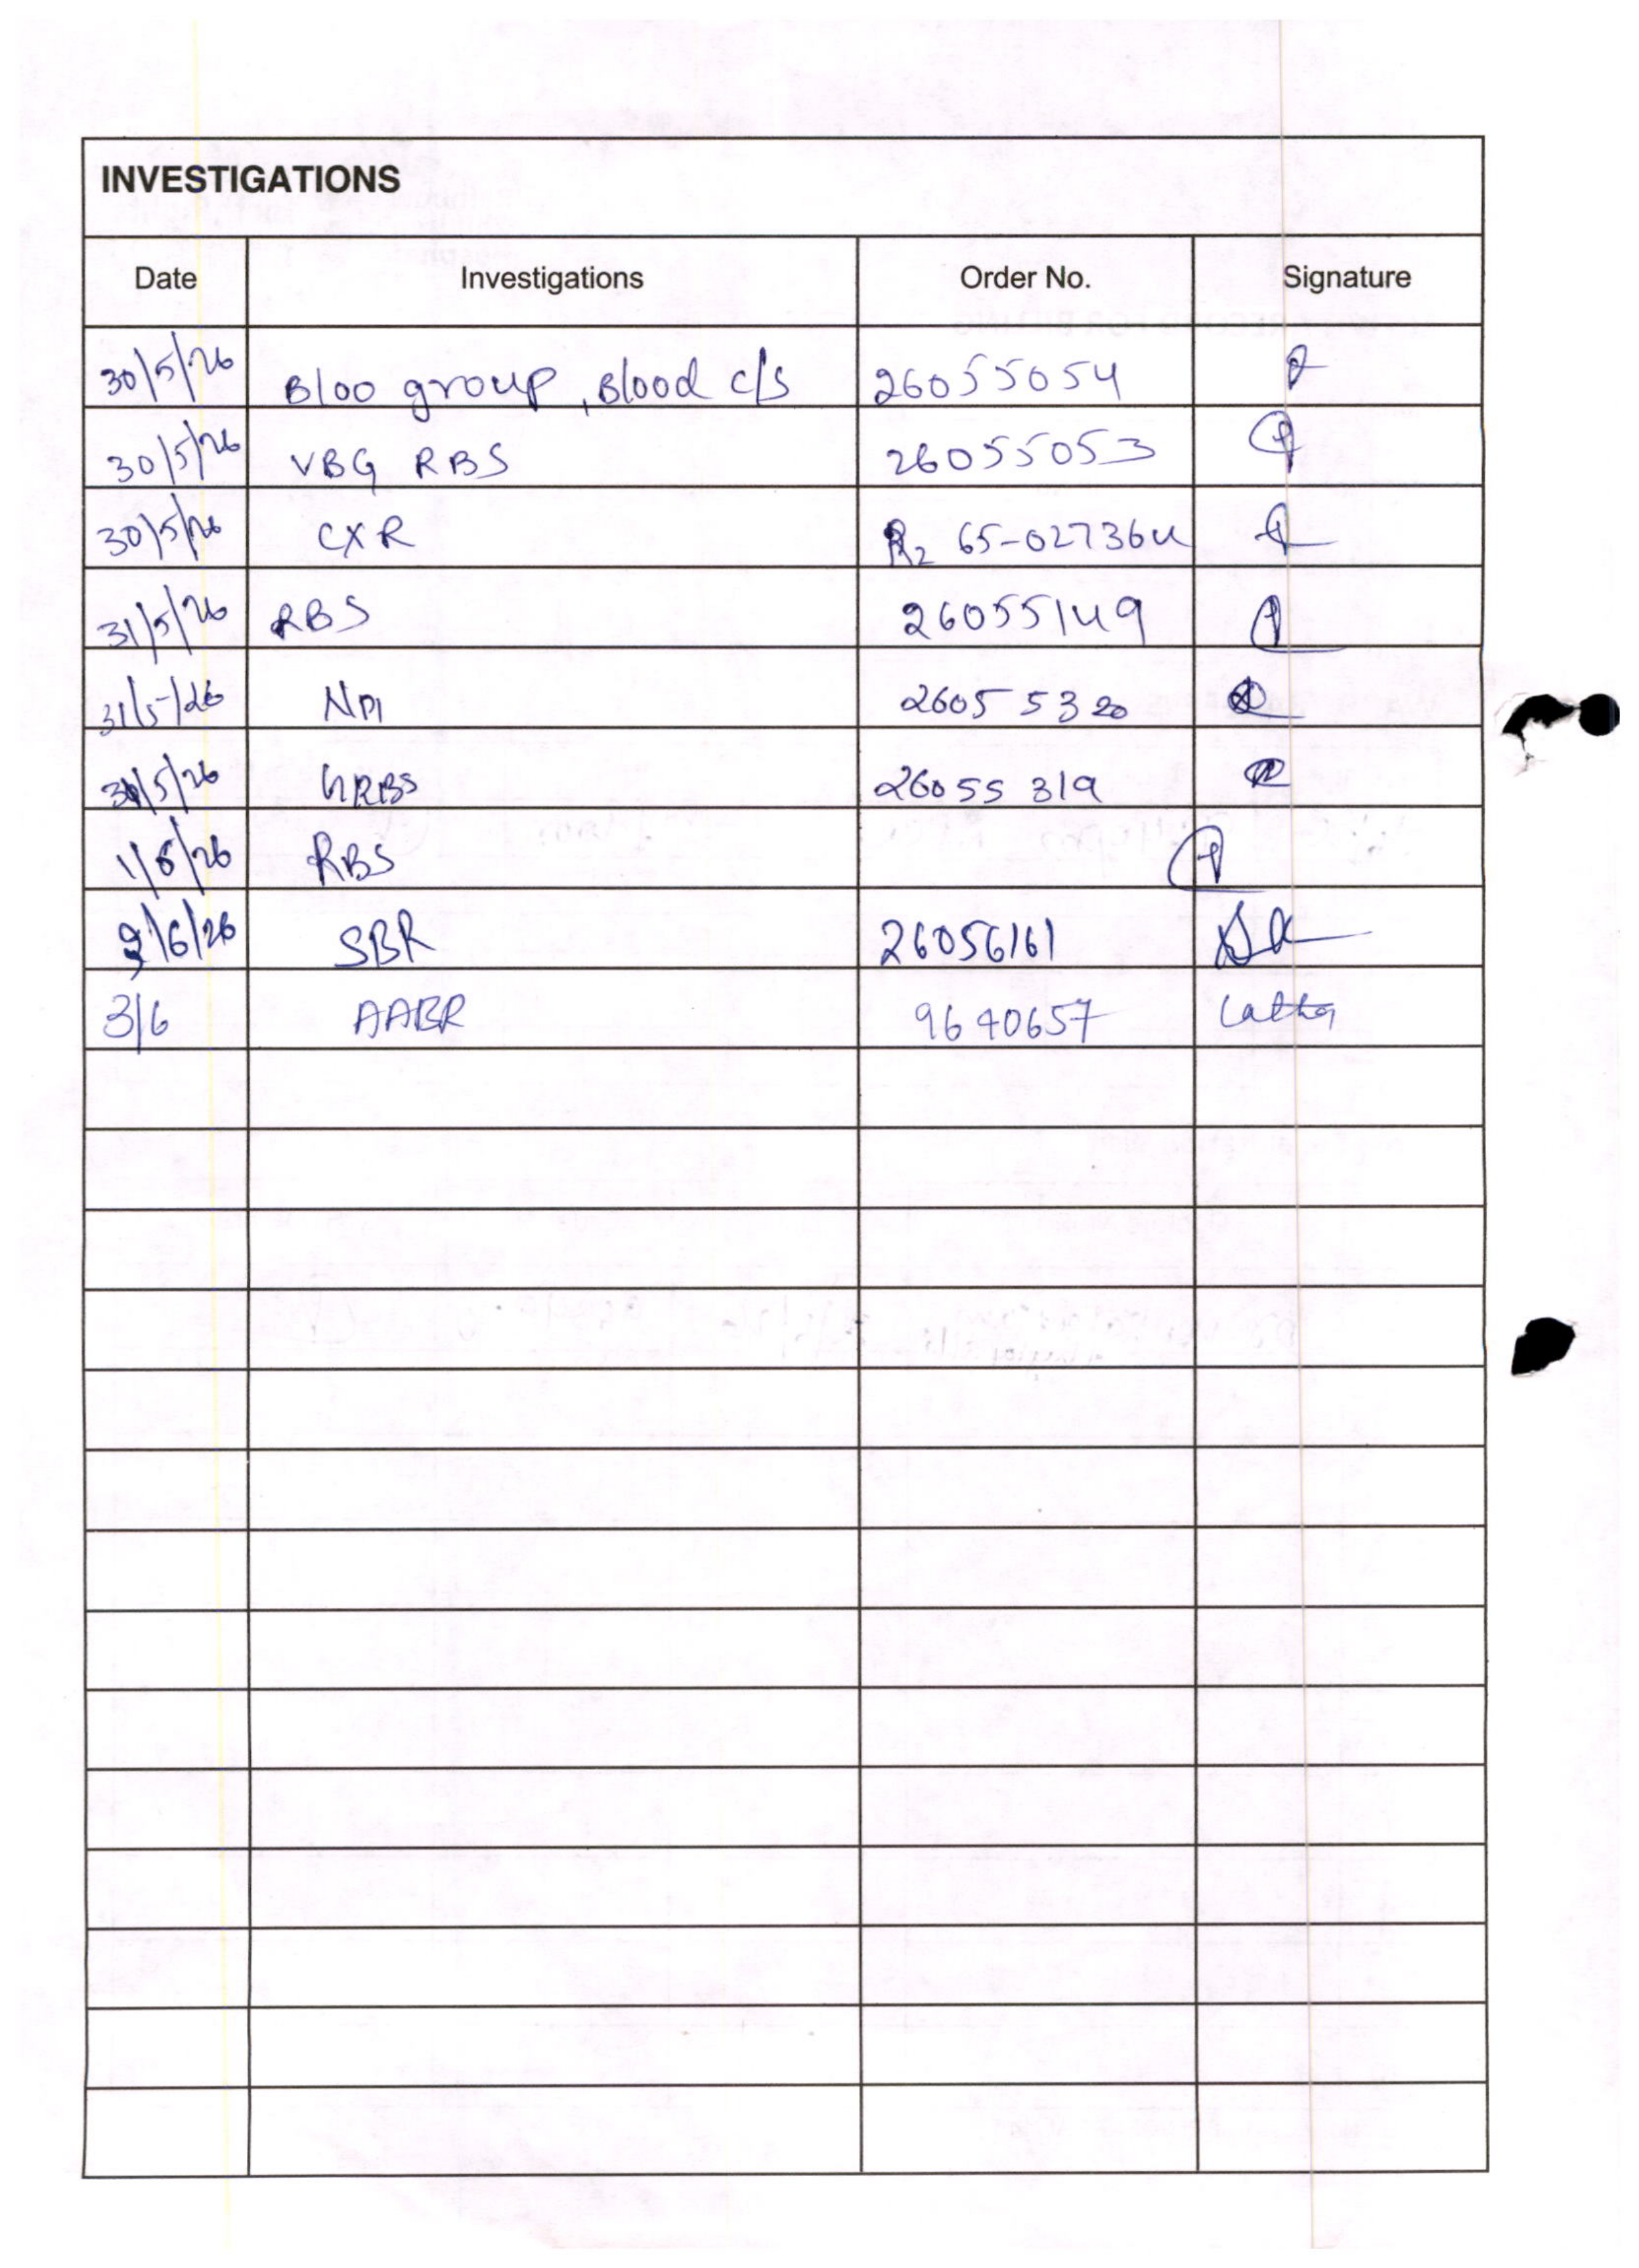 INVESTIGATIONS
Date Investigations Order No. Signature
30/5/26 Bloo group, Blood c/s 26055054
30/5/26 VBG RBS 26055053
30/5/26 CXR R2 65-027364
31/5/26 RBS 26055149
31/5/26 26055320
/5/26 26055319
1/6/26 RBS
/6/26 SBR 26056161
3/6 AABR 9640657 Latha